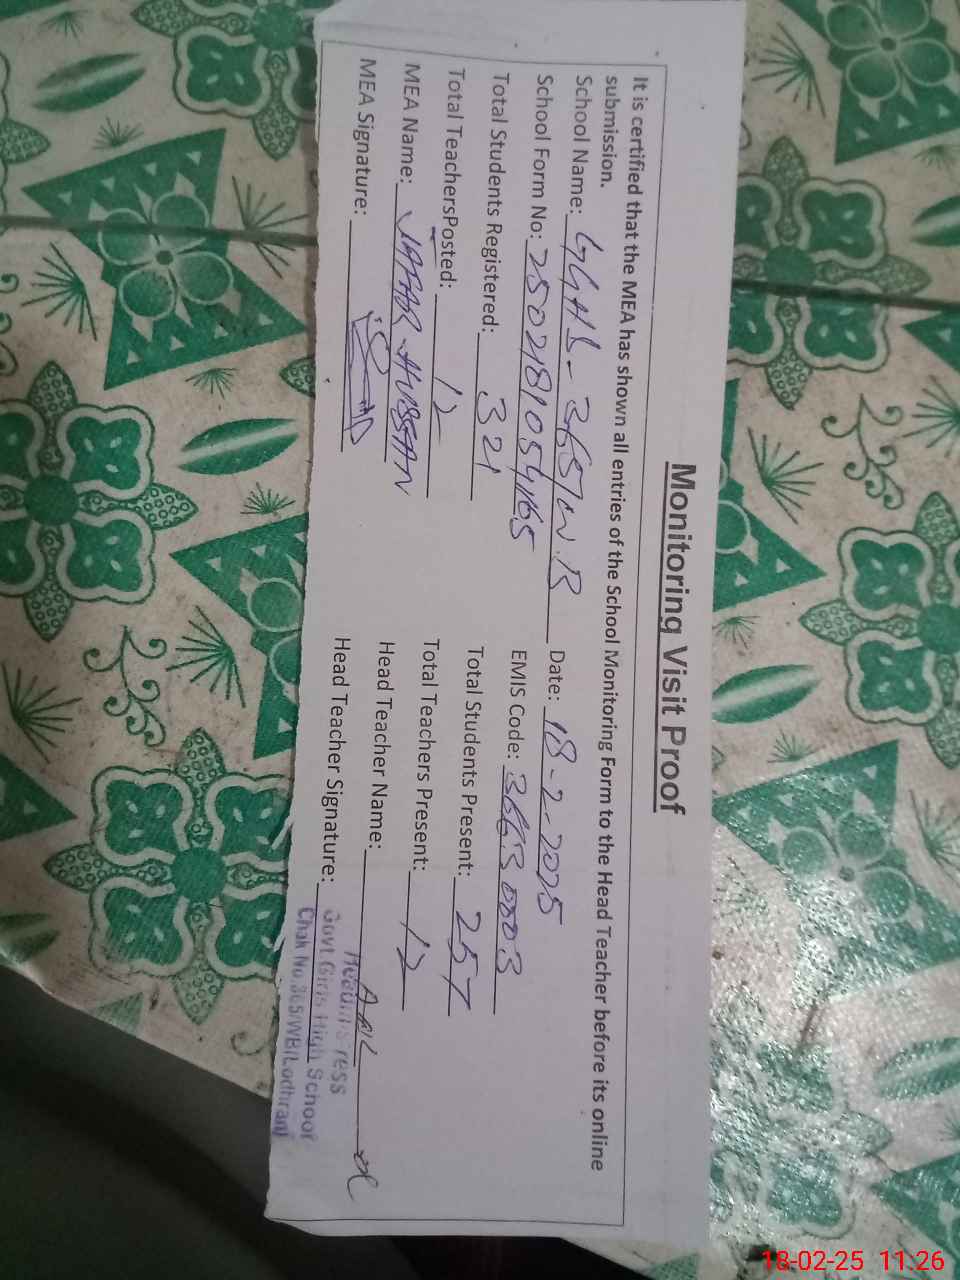 Monitoring Visit Proof
It is certified that the MEA has shown all entries of the School Monitoring Form to the Head Teacher before its online
submission.
School Name: GGHS - 365/W.B Date: 18-2-2025
School Form No: 2502181054165 EMIS Code: 36630003
Total Students Registered: 321 Total Students Present: 257
Total TeachersPosted: 12 Total Teachers Present: 12
MEA Name: JAFAR HUSSAN Head Teacher Name:
MEA Signature: Head Teacher Signature:
Headmistress
Govt.Girls High School
Chak No.365/WB(Lodhran)
18-02-25 11:26